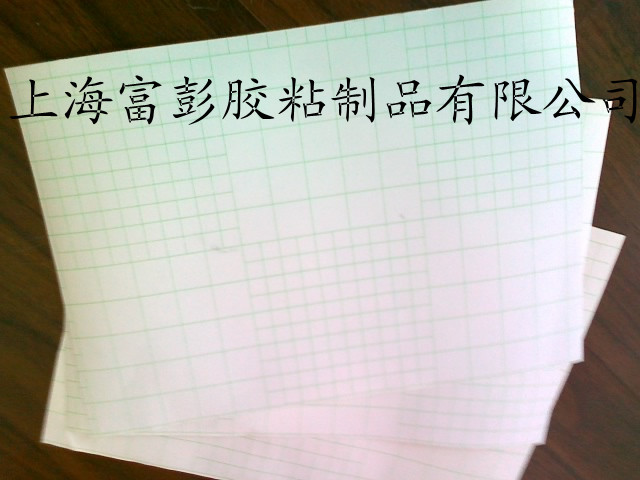 上海富彭胶粘制品有限公司